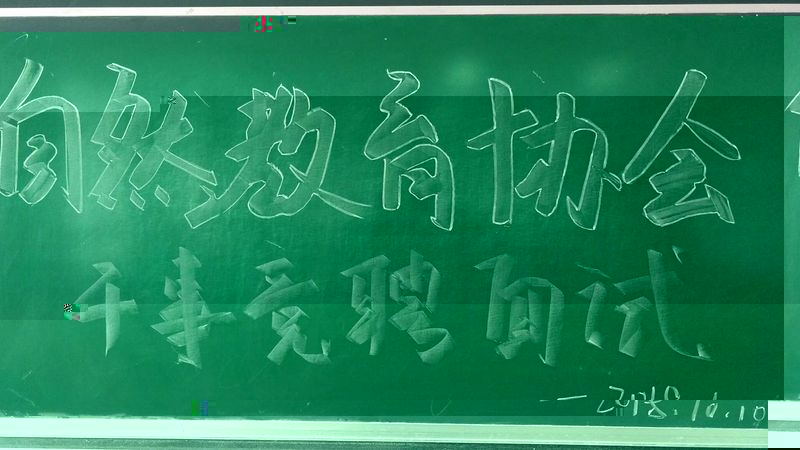 自然教育协会
干事竞聘面试
一2018.10.10